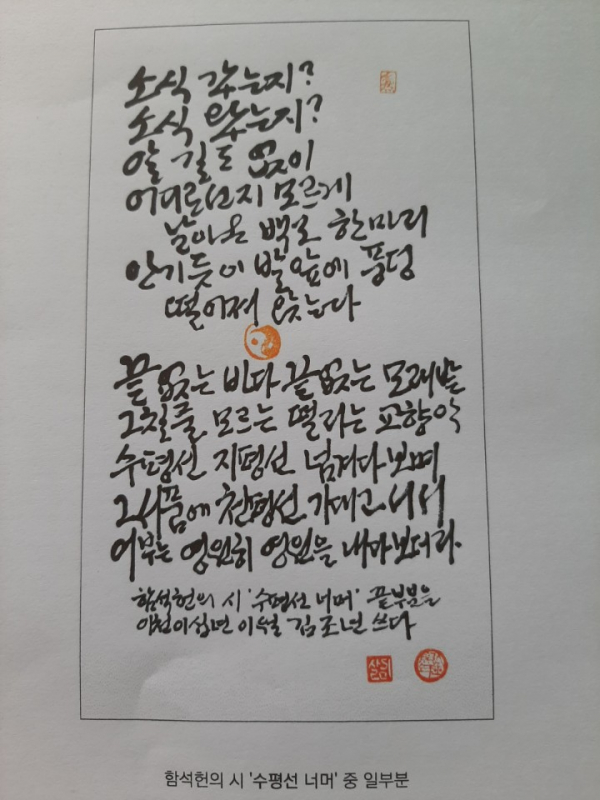 소식 갔는지?
소식 왔는지?
알 길도 없이
어디로선지 모르게
날아온 백로 한마리
안기듯이 발앞에 풍덩
떨어져 앉는다
끝없는 바다 끝없는 모래밭
그칠줄 모르는 떨리는 교향악
수평선 지평선 넘겨다보며
그사품에 천평선 가대고 서서
어부는 영원히 영원을 내다보더라.
함석헌의 시 '수평선 너머' 끝부분을
이천이십년 이월 김조년 쓰다
함석헌의 시 '수평선 너머' 중 일부분